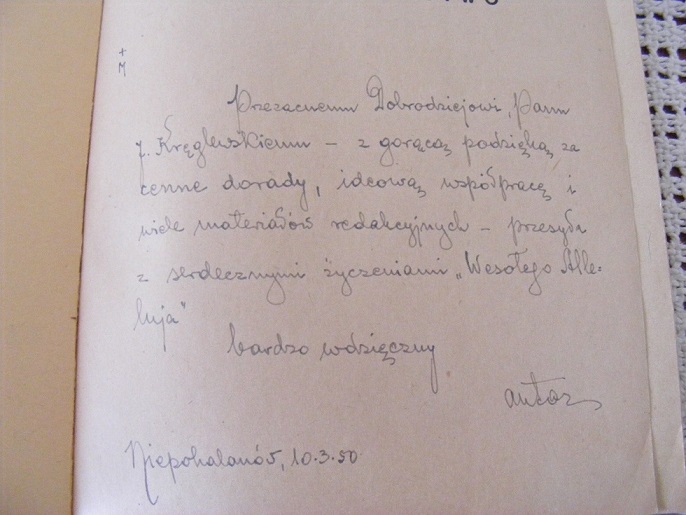 +
M
Przezacnemu Dobrodziejowi, Panu
J. Kręglewskiemu – z gorącą podzięką za
cenne dorady, ideową współpracę i
wiele materiałów redakcyjnych – przesyła
z serdecznymi życzeniami „Wesołego Alle-
luja"
bardzo wdzięczny
autor
Niepokalanów, 10.3.50